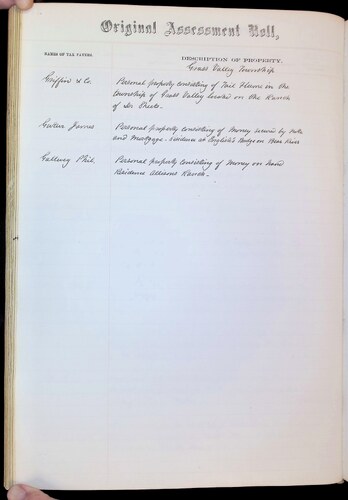 Original Assessment Roll,
NAMES OF TAX PAYERS.
DESCRIPTION OF PROPERTY.
Grass Valley Township
Griffin & Co. Personal property consisting of Tail Flume in the
township of Grass Valley located on the Ranch
of
James Personal property consisting of Money secured by Note
and Mortgage. Residence at English's Bridge on Bear River
Gallway Phil. Personal property consisting of Money on hand
Residence Allisons Ranch.